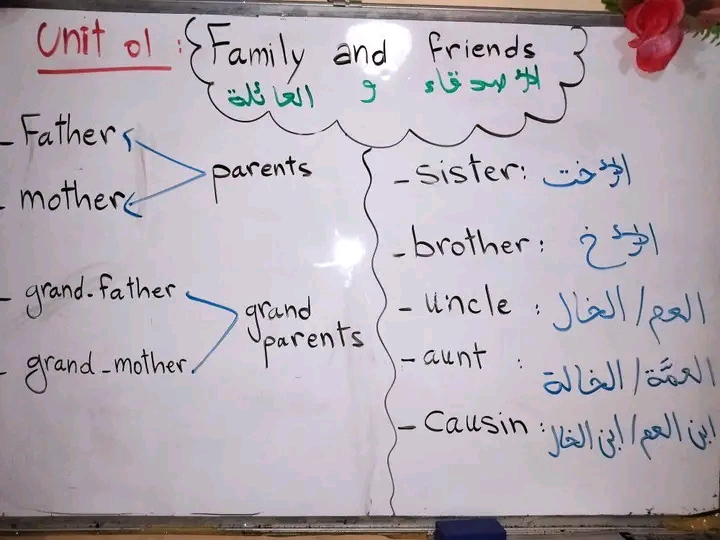 Unit 01 : Family and friends
العائلة و الأصدقاء
- Father
- mother
parents
- grand-father
- grand-mother
grand
parents
- sister: الأخت
- brother: الأخ
- uncle : العم/الخال
- aunt : العمَّة/الخالة
- Causin: ابن العم/ابن الخال